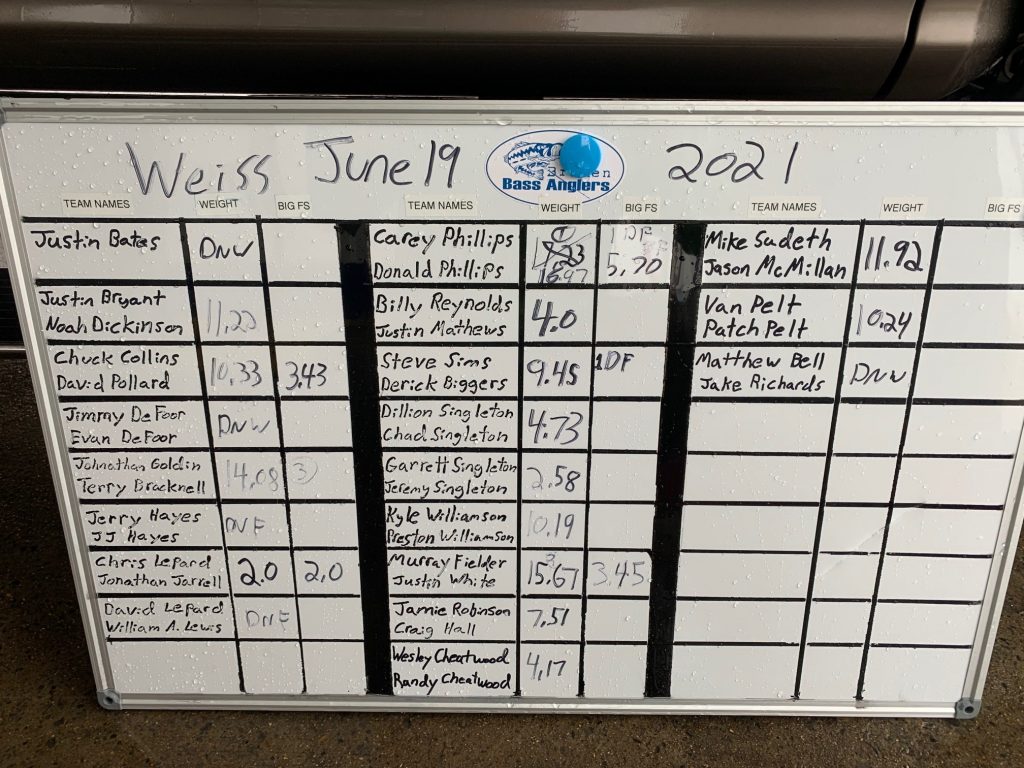 Weiss June 19 2021
Bass Anglers
TEAM NAMES WEIGHT BIG FS
Justin Bates DNW
Justin Bryant
Noah Dickinson 11.20
Chuck Collins
David Pollard 10.33 3.43
Jimmy DeFoor
Evan DeFoor DNW
Johnathan Goldin
Terry Bracknell 14.08 3
Jerry Hayes
JJ Hayes DNF
Chris Lepard
Jonathan Jarrell 2.0 2.0
David Lepard
William A. Lewis DNF
TEAM NAMES WEIGHT BIG FS
Carey Phillips 1 1DF
Donald Phillips 18.97 5.70
Billy Reynolds
Justin Mathews 4.0
Steve Sims
Derick Biggers 9.45 1DF
Dillion Singleton
Chad Singleton 4.73
Garrett Singleton
Jeremy Singleton 2.58
Kyle Williamson
Preston Williamson 10.19
Murray Fielder 2
Justin White 15.67 3.45
Jamie Robinson
Craig Hall 7.51
Wesley Cheatwood
Randy Cheatwood 4.17
TEAM NAMES WEIGHT BIG FS
Mike Sudeth
Jason McMillan 11.92
Van Pelt
Patch Pelt 10.24
Matthew Bell
Jake Richards DNW